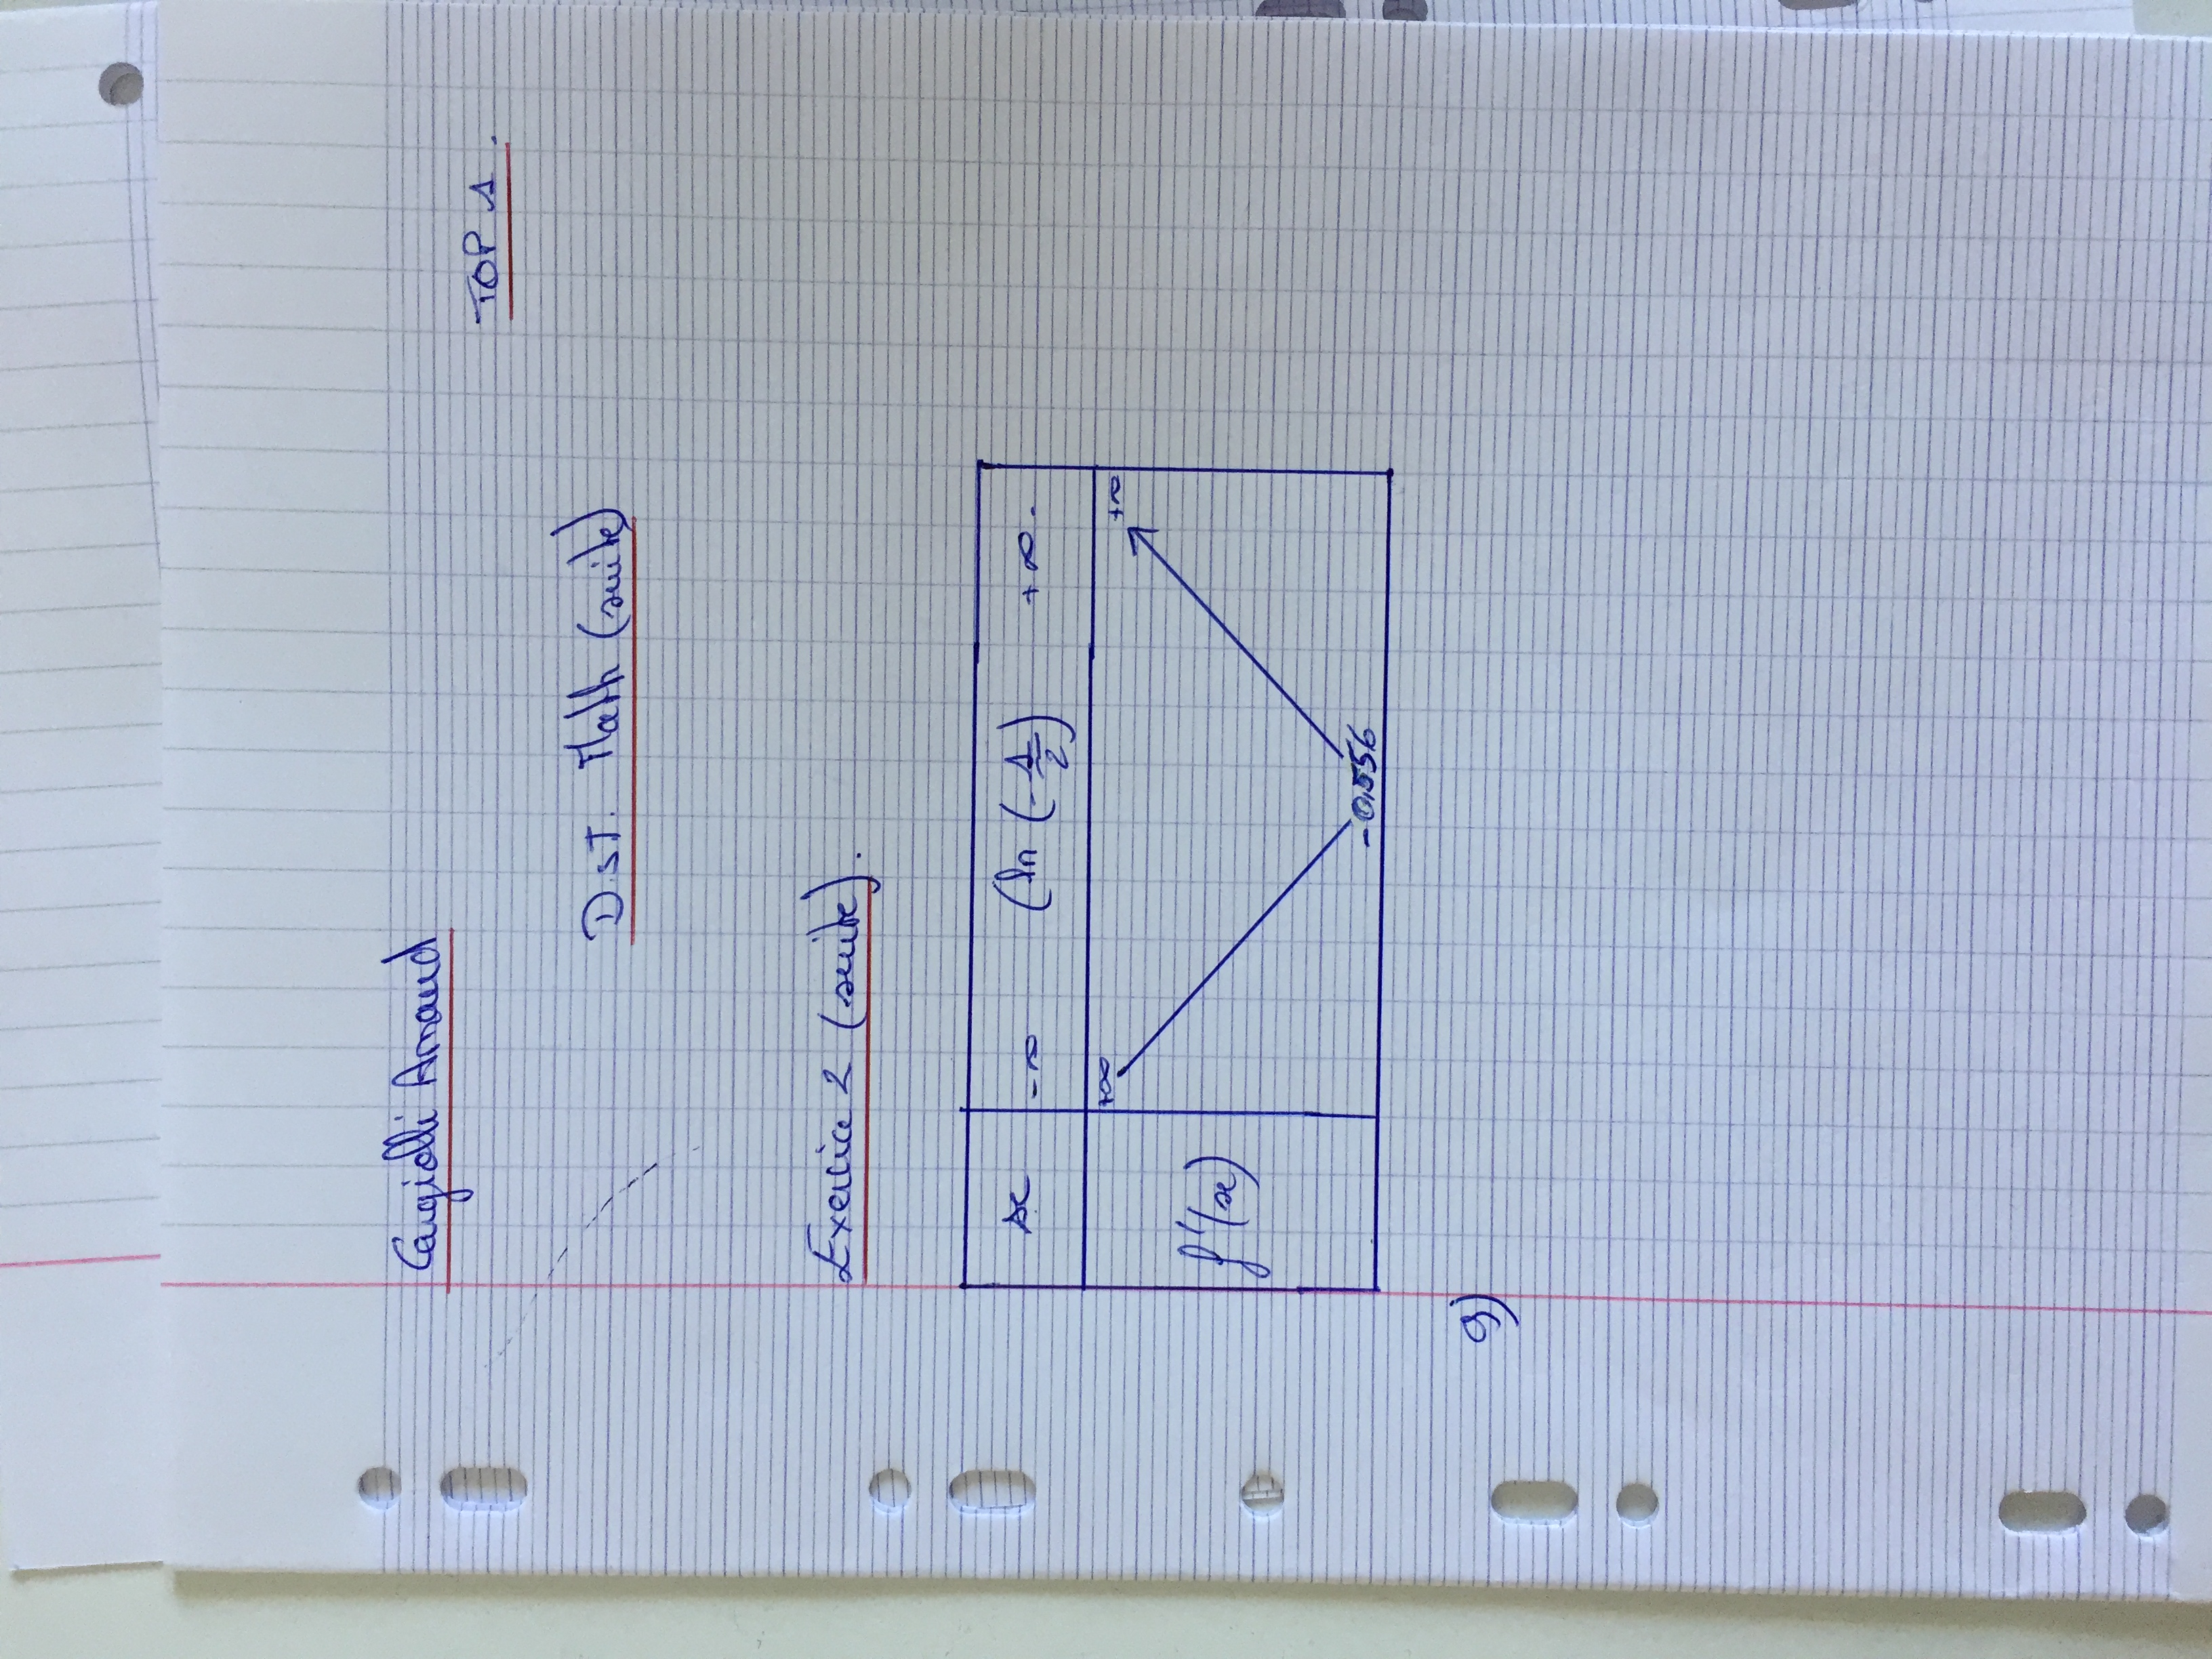 Arnaud
TOP 1.
D.S.T. Math (suite)
Exercice 2 (suite).
x -∞ (ln (-1/2) +∞.
+∞ +∞
f'(x)
-0,556
9)